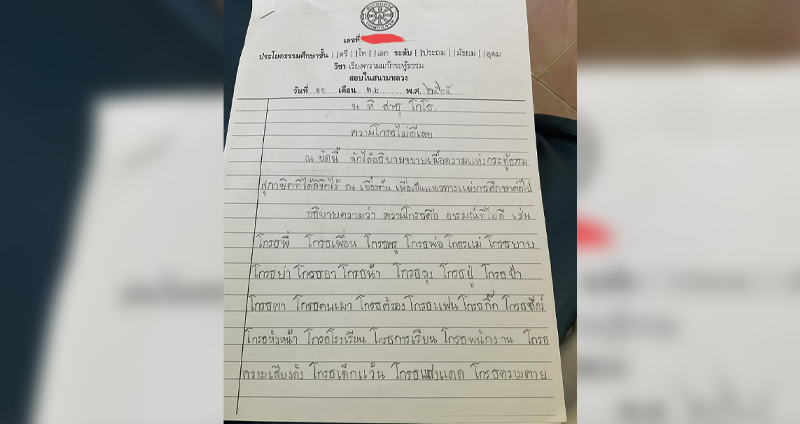 เลขที่
ประโยคธรรมศึกษาชั้น | |ตรี | |โท | |เอก ระดับ | |ประถม | |มัธยม | |อุดม
วิชา เรียงความแก้กระทู้ธรรม
สอบในสนามหลวง
วันที่ ๑๐ เดือน พ.ศ.
น หิ สาธุ โกโธ.
ความโกรธไม่ดีเลย
ณ บัดนี้ จักได้อธิบายขยายเนื้อความแห่งกระทู้ธรรม
สุภาษิตที่ได้ลิขิตไว้ ณ เบื้องต้น เพื่อเป็นแนวทางแห่งการศึกษาต่อไป
อธิบายความว่า ความโกรธคือ อารมณ์ที่ไม่ดี เช่น
โกรธพี่ โกรธเพื่อน โกรธครู โกรธพ่อ โกรธแม่ โกรธยาย
โกรธย่า โกรธอา โกรธน้า โกรธลุง โกรธปู่ โกรธป้า
โกรธตา โกรธคนเมา โกรธตัวเอง โกรธแฟน โกรธกิ๊ก โกรธสัตว์
โกรธหัวหน้า โกรธโรงเรียน โกรธการเรียน โกรธพนักงาน โกรธ
ความเสียงดัง โกรธเด็กแว้น โกรธแสงแดด โกรธความตาย